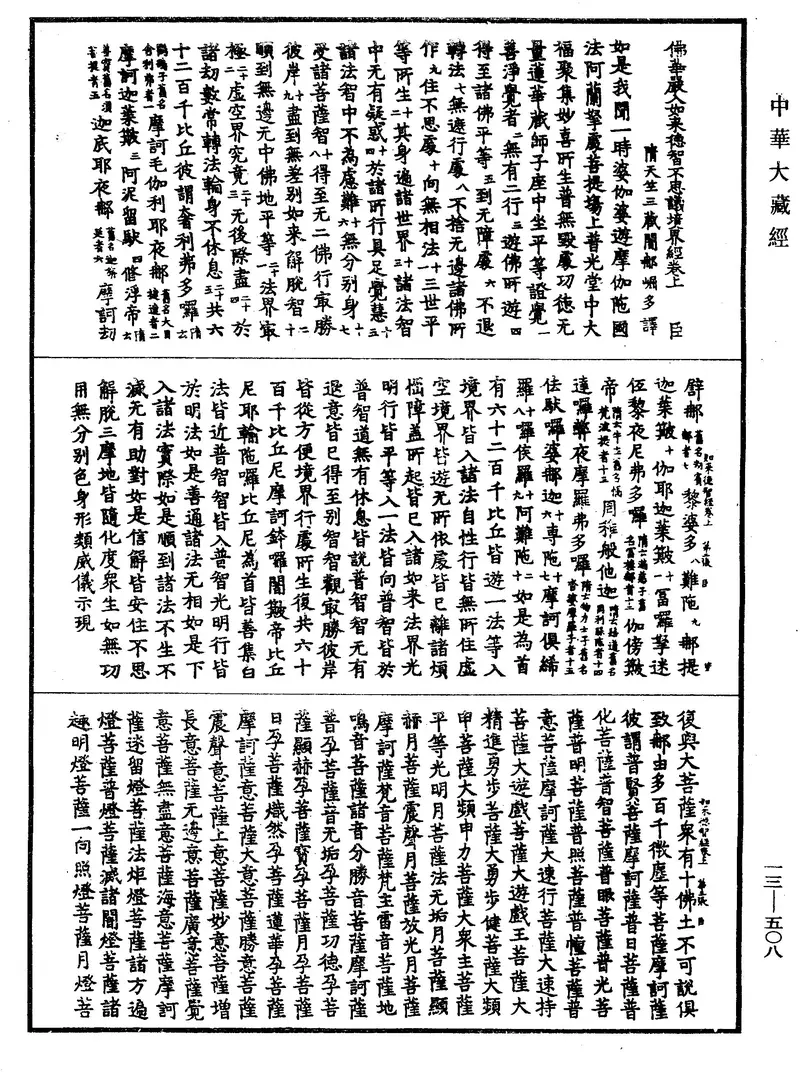 中華大藏經
佛華嚴入如來德智不思議境界經卷上 臣
隋天竺三藏闍那崛多譯
如是我聞一時婆伽婆遊摩伽陁國
法阿蘭拏處菩提場上普光堂中大
福聚集妙喜所生普無毀處功德无
量蓮華藏師子座中坐平等證覺一
善淨覺者二無有二行三遊佛所遊四
得至諸佛平等五到无障處六不退
轉法七無遮行處八不捨无邊諸佛所
作九住不思處十向無相法十一三世平
等所生十二其身遍諸世界十三諸法智
中无有疑惑十四於諸所行具足覺慧十五
諸法智中不為慮難十六無分別身十七
受諸菩薩智十八得至无二佛行寂勝
彼岸十九盡到無差別如來解脫智二十
順到無邊无中佛地平等二十一法界寂
極二十二虛空界究竟二十三无後際盡二十四於
諸劫數常轉法輪身不休息二十五共六
十二百千比丘彼謂奢利弗多囉隋云
鸜鵒子舊名舍利弗者一摩訶毛伽利耶夜那舊名大目揵連者二
摩訶迦葉皷三阿泥留馱四修浮帝隋云
善實舊名須菩提者五迦底耶夜那舊名迦旃延者六摩訶劫
如來德智經卷上 第二張 臣
臂那舊名劫賓那者七黎婆多八難陁九那提
迦葉皷十伽耶迦葉皷十一富囉拏迷
低黎夜尼弗多囉隋云滿慈子舊名富樓那者十二伽傍皷
帝隋云牛主舊名憍梵波提者十三周稚般他迦隋云路邊舊名周利槃陁者十四
達囉弊夜摩羅弗多囉隋云物力士子舊名沓婆摩羅子者十五
佉馱囉婆那迦十六専陁十七摩訶俱絺
羅十八囉怙羅十九阿難陁二十如是為首
有六十二百千比丘皆遊一法等入
境界皆入諸法自性行皆無所住虛
空境界皆遊无所依處皆已離諸煩
惱障蓋所起皆已入諸如來法界光
明行皆平等入一法皆向普智皆於
普智道無有休息皆說普智智无有
退意皆已得至別智智觀寂勝彼岸
皆從方便境界行處所生復共六十
百千比丘尼摩訶鉢囉闍皷帝比丘
尼耶輸陁囉比丘尼為首皆善集白
法皆近普智智皆入普智光明行皆
於明法如是善通諸法无相如是下
入諸法實際如是順到諸法不生不
滅无有助對如是信解皆安住不思
解脫三摩地皆隨化度衆生如無功
用無分別色身形類威儀示現
如來德智經卷上 第三張 臣
復與大菩薩衆有十佛土不可說俱
致那由多百千微塵等菩薩摩訶薩
彼謂普賢菩薩摩訶薩普日菩薩普
化菩薩音智菩薩普眼菩薩普光菩
薩普明菩薩普照菩薩普幢菩薩普
意菩薩摩訶薩大速行菩薩大速持
菩薩大遊戲菩薩大遊戲王菩薩大
精進勇步菩薩大勇步健菩薩大頻
申菩薩大頻申力菩薩大衆主菩薩
平等光明月菩薩法无垢月菩薩顯
赫月菩薩震聲月菩薩放光月菩薩
摩訶薩梵音菩薩梵主雷音菩薩地
鳴音菩薩諸音分勝音菩薩摩訶薩
普孕菩薩音无垢孕菩薩功德孕菩
薩顯赫孕菩薩寶孕菩薩月孕菩薩
日孕菩薩熾然孕菩薩蓮華孕菩薩
摩訶薩意菩薩大意菩薩勝意菩薩
震聲意菩薩上意菩薩妙意菩薩增
長意菩薩无邊意菩薩廣意菩薩覺
意菩薩無盡意菩薩海意菩薩摩訶
薩迷留燈菩薩法炬燈菩薩諸方遍
燈菩薩普燈菩薩滅諸闇燈菩薩諸
趣明燈菩薩一向照燈菩薩月燈菩
一三—五〇八